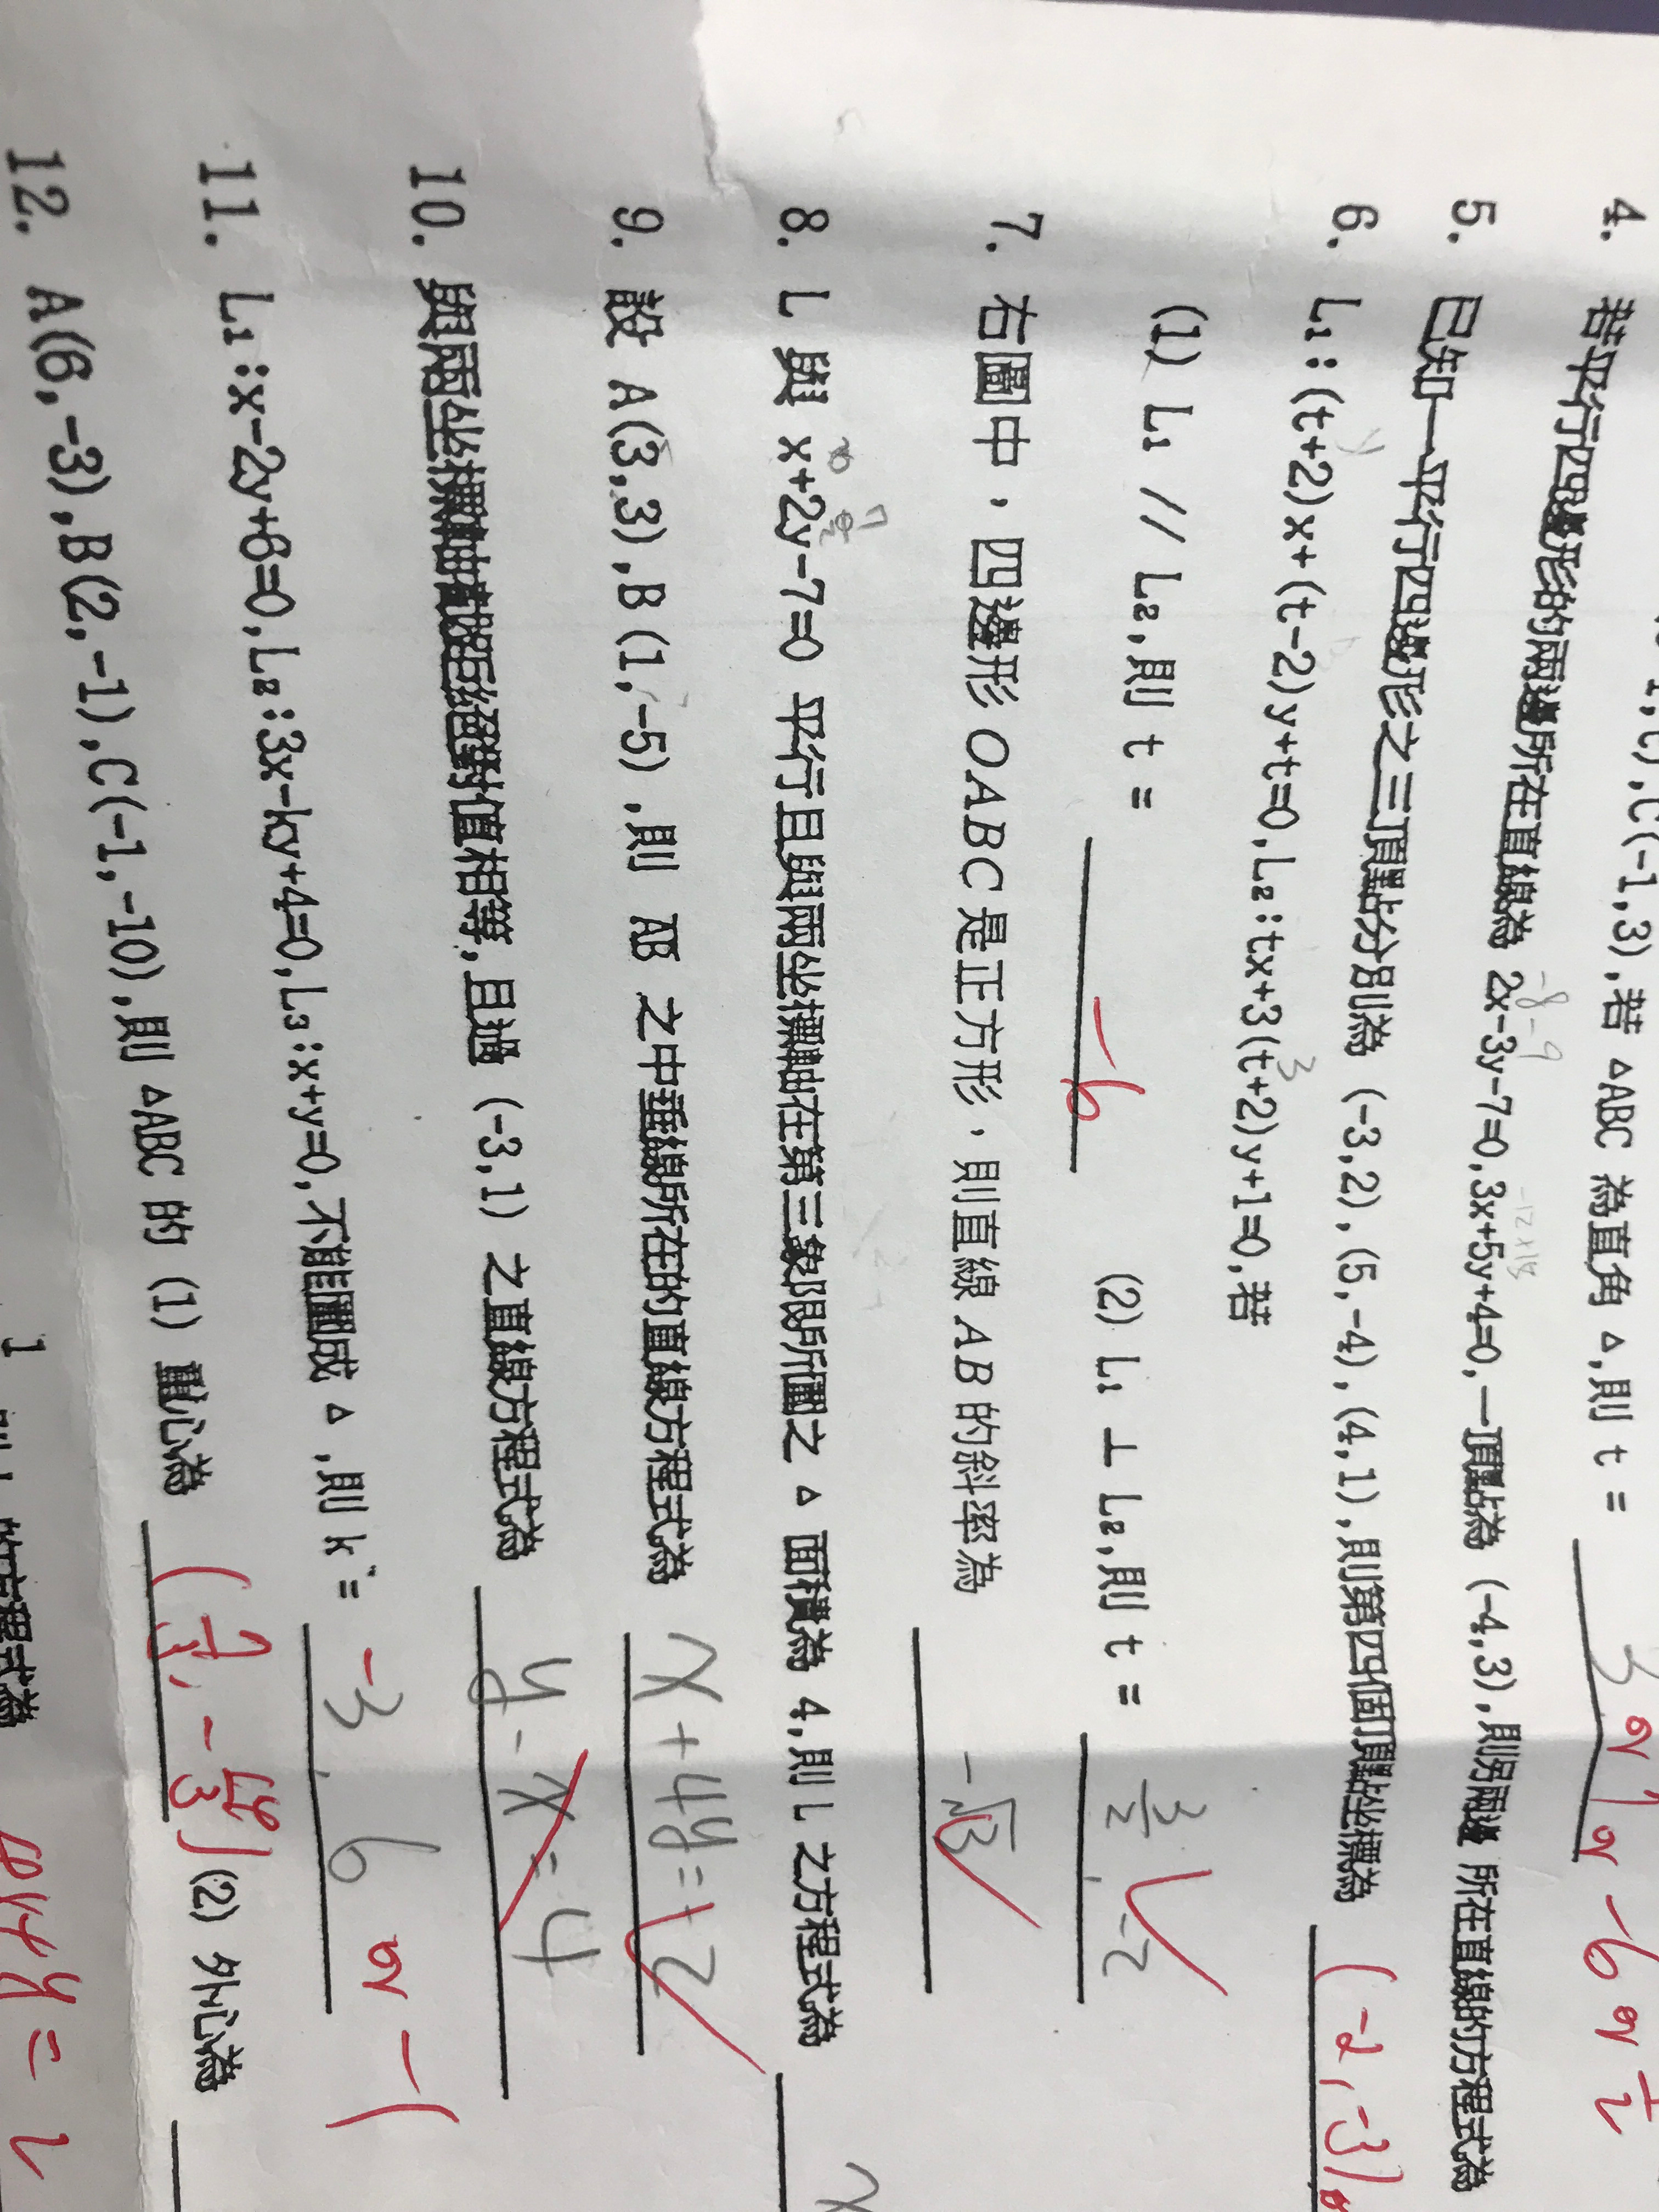 1,t),C(-1,3),若 △ABC 為直角 △,則 t = 3 or 1 or -6 or 1/2
4. 若平行四邊形的兩邊所在直線為 2x-3y-7=0,3x+5y+4=0,一頂點為 (-4,3),則另兩邊 所在直線的方程式為
-8 -9
5. 已知一平行四邊形之三頂點分別為 (-3,2),(5,-4),(4,1),則第四個頂點坐標為 (-2,-3)
6. L₁:(t+2)x+(t-2)y+t=0,L₂:tx+3(t+2)y+1=0,若
(1) L₁ // L₂,則 t = -6 (2) L₁ ⊥ L₂,則 t = 3/2, -2
7. 右圖中,四邊形 OABC 是正方形,則直線 AB 的斜率為 -√3
8. L 與 x+2y-7=0 平行且與兩坐標軸在第三象限所圍之 △ 面積為 4,則 L 之方程式為 x
9. 設 A(3,3),B(1,-5),則 AB 之中垂線所在的直線方程式為 x+4y=12
10. 與兩坐標軸截距絕對值相等,且過 (-3,1) 之直線方程式為 y-x=4
11. L₁:x-2y+6=0,L₂:3x-ky+4=0,L₃:x+y=0,不能圍成 △,則 k = -3, 6 or -1
12. A(6,-3),B(2,-1),C(-1,-10),則 △ABC 的 (1) 重心為 (7/3, -14/3) (2) 外心為